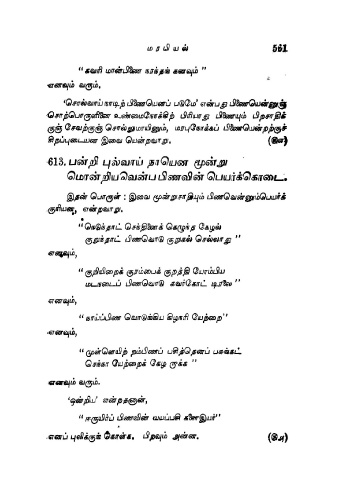 மரபியல் 561
“கவரி மான்பிணை கரந்தக் கனவும்”
எனவும் வரும்,
‘சொல்வாய் நாடிற் பிணையெனப் படுமே’ என்பது பிணையென்னுஞ்
சொற்பொருளினை உண்மைநோக்கிற் பிரியாது பிணையும் பிறசாதிக்
குஞ் சேவற்குஞ் சொல்லுமாயினும், மரபுநோக்கப் பிணையென்றற்குச்
சிறப்புடையன இவை யென்றவாறு.
613. பன்றி புல்வாய் நாயென மூன்று
மொன்றியவென்ப பிணவின் பெயர்க்கொடை.
இதன் பொருள் : இவை மூன்றுசாதியும் பிணவென்னும்பெயர்க்
குரியன, என்றவாறு.
“நெடுந்தாட் செந்தினைக் கெழுந்த கேழல்
குறுந்தாட் பிணவொடு குறுகல் செல்லாது”
எனவும்,
“குறியிறைக் குரம்பைக் குறத்தி யோம்பிய
மடநடைப் பிணவொடு கவர்கோட் டிரலை”
எனவும்,
“காய்ப்பிண வொடுங்கிய கிழநரி யேற்றை”
எனவும்,
“முள்ளெயிற் றம்பிணப் பசித்தெனப் பசுங்கட்
செந்நா யேற்றைக் கேழ றாக்க”
எனவும் வரும்.
‘ஒன்றிய’ என்றதனான்,
“ஈருயிர்ப் பிணவின் வயப்பசி களைஇயர்”
எனப் புலிக்குங் கொள்க. பிறவும் அன்ன. (௫௮)